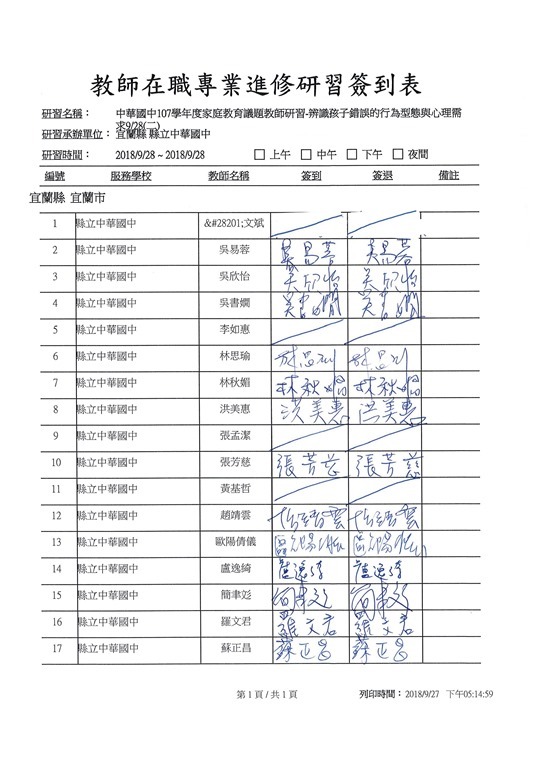 教師在職專業進修研習簽到表
研習名稱： 中華國中107學年度家庭教育議題教師研習-辨識孩子錯誤的行為型態與心理需
求9/28(二)
研習承辦單位： 宜蘭縣 縣立中華國中
研習時間： 2018/9/28 ~ 2018/9/28 □ 上午 □ 中午 □ 下午 □ 夜間
編號 服務學校 教師名稱 簽到 簽退 備註
宜蘭縣 宜蘭市
1 縣立中華國中 &#28201;文斌
2 縣立中華國中 吳易蓉 吳易蓉 吳易蓉
3 縣立中華國中 吳欣怡 吳欣怡 吳欣怡
4 縣立中華國中 吳書嫻 吳書嫻 吳書嫻
5 縣立中華國中 李如惠
6 縣立中華國中 林思瑜 林思瑜 林思瑜
7 縣立中華國中 林秋媚 林秋媚 林秋媚
8 縣立中華國中 洪美惠 洪美惠 洪美惠
9 縣立中華國中 張孟潔
10 縣立中華國中 張芳慈 張芳慈 張芳慈
11 縣立中華國中 黃基哲
12 縣立中華國中 趙靖雲 趙靖雲 趙靖雲
13 縣立中華國中 歐陽倩儀
14 縣立中華國中 盧逸綺 盧逸綺 盧逸綺
15 縣立中華國中 簡聿彣
16 縣立中華國中 羅文君 羅文君 羅文君
17 縣立中華國中 蘇正昌 蘇正昌 蘇正昌
第 1 頁 / 共 1 頁 列印時間：2018/9/27 下午05:14:59